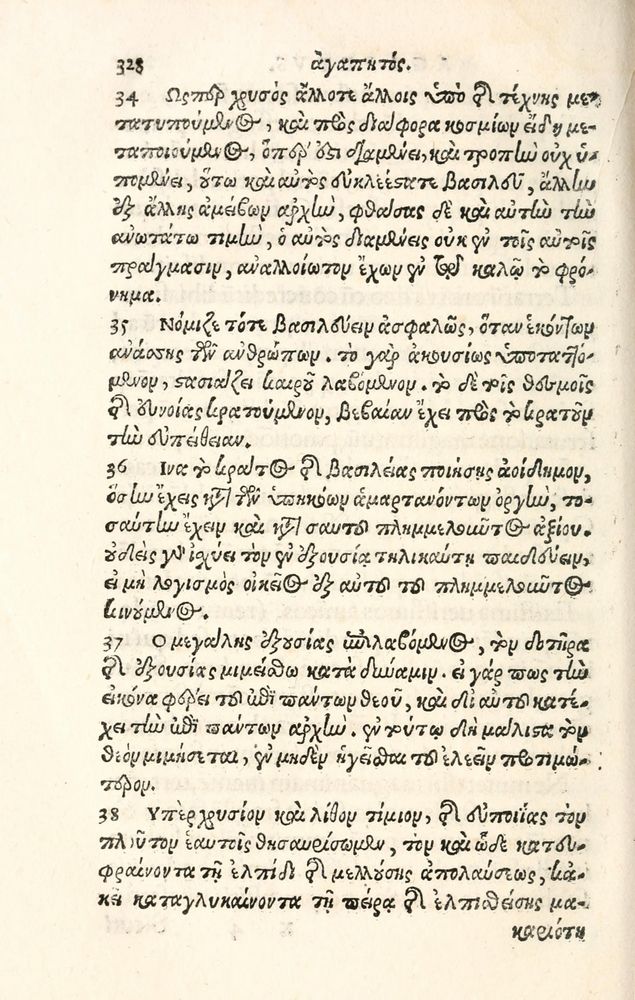 328 ἀγαπητός.
34 Ωςπερ χρυσὸς ἄλλοτε ἄλλοις ὑπὸ τῆς τέχνης με-
τατυπούμενος, καὶ πρὸς διάφορα κοσμίων εἴδη με-
ταποιούμενος, ὅπερ ὅτι διαμένει, καὶ τροπὴν οὐχ ὑ-
πομένει, οὕτω καὶ αὐτὸς εὐκλεέστατε βασιλεῦ, ἄλλην
ἐξ ἄλλης ἀμείβων ἀρχὴν, φθάσας δὲ καὶ αὐτὴν τὴν
ἀνωτάτω τιμὴν, ὁ αὐτὸς διαμένεις οὐκ ἐν τοῖς αὐτοῖς
πράγμασιν, ἀναλλοίωτον ἔχων ἐν τῷ καλῷ τὸ φρό-
νημα.
35 Νόμιζε τότε βασιλεύειν ἀσφαλῶς, ὅταν ἑκόντων
ἀνάσσης τῶν ἀνθρώπων. τὸ γὰρ ἀκουσίως ὑποταττό-
μενον, στασιάζει καιροῦ λαβόμενον. τὸ δὲ τοῖς θεσμοῖς
τῆς εὐνοίας κρατούμενον, βεβαίαν ἔχει πρὸς τὸ κρατοῦν
τὴν εὐπείθειαν.
36 Ινα τὸ κράτος τῆς βασιλείας ποιήσης ἀοίδημον,
ὅσην ἔχεις κατὰ τῶν ὑπηκόων ἁμαρτανόντων ὀργὴν, το-
σαύτην ἔχειν καὶ κατὰ σαυτοῦ πλημμελοῦντος ἀξίου.
οὐδεὶς γὰρ ἰσχύει τὸν ἐν ἐξουσίᾳ τηλικαύτη παιδεύειν,
εἰ μὴ λογισμὸς οἰκεῖος ἐξ αὐτοῦ τοῦ πλημμελοῦντος
κινούμενος.
37 Ο μεγάλης ἐξουσίας ἐπιλαβόμενος, τὸν δοτῆρα
τῆς ἐξουσίας μιμείσθω κατὰ δύναμιν. εἰ γάρ πως τὴν
εἰκόνα φέρει τοῦ ἐπὶ πάντων θεοῦ, καὶ δι αὐτοῦ κατέ-
χει τὴν ἐπὶ πάντων ἀρχὴν. ἐν τούτῳ δὴ μάλιστα τὸν
θεὸν μιμήσεται, ἐν μηδὲν ἡγεῖσθαι τοῦ ἐλεεῖν προτιμώ-
τερον.
38 Υπὲρ χρυσίον καὶ λίθον τίμιον, τῆς εὐποιΐας τὸν
πλοῦτον ἑαυτοῖς θησαυρίσωμεν, τὸν καὶ ὧδε κατευ-
φραίνοντα τῇ ἐλπίδι τῆς μελλούσης ἀπολαύσεως, κἀ-
κεῖ καταγλυκαίνοντα τῇ πείρᾳ τῆς ἐλπισθείσης μα-
καριότη